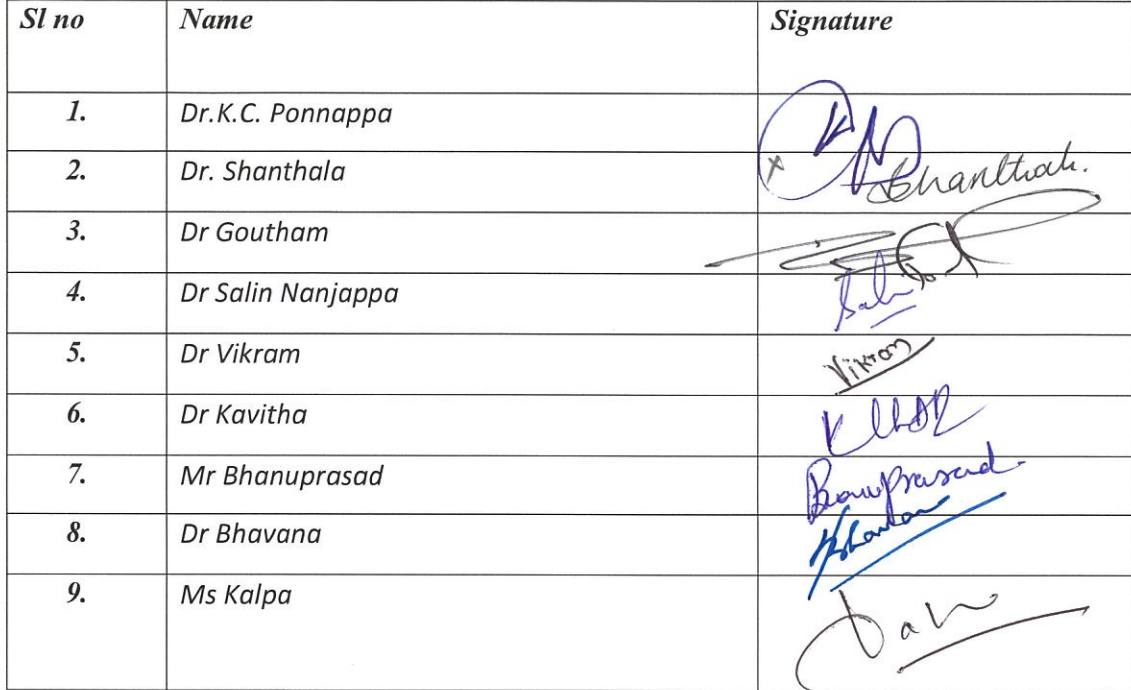 Sl no Name Signature
1. Dr.K.C. Ponnappa
2. Dr. Shanthala Shanthala.
3. Dr Goutham
4. Dr Salin Nanjappa
5. Dr Vikram Vikram
6. Dr Kavitha
7. Mr Bhanuprasad Bhanuprasad
8. Dr Bhavana
9. Ms Kalpa